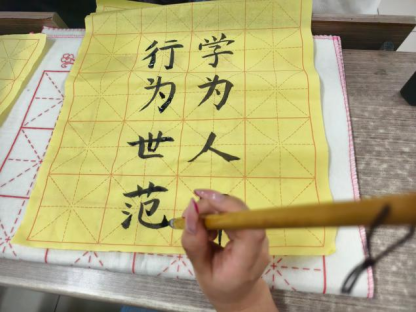 学为人
行为世范